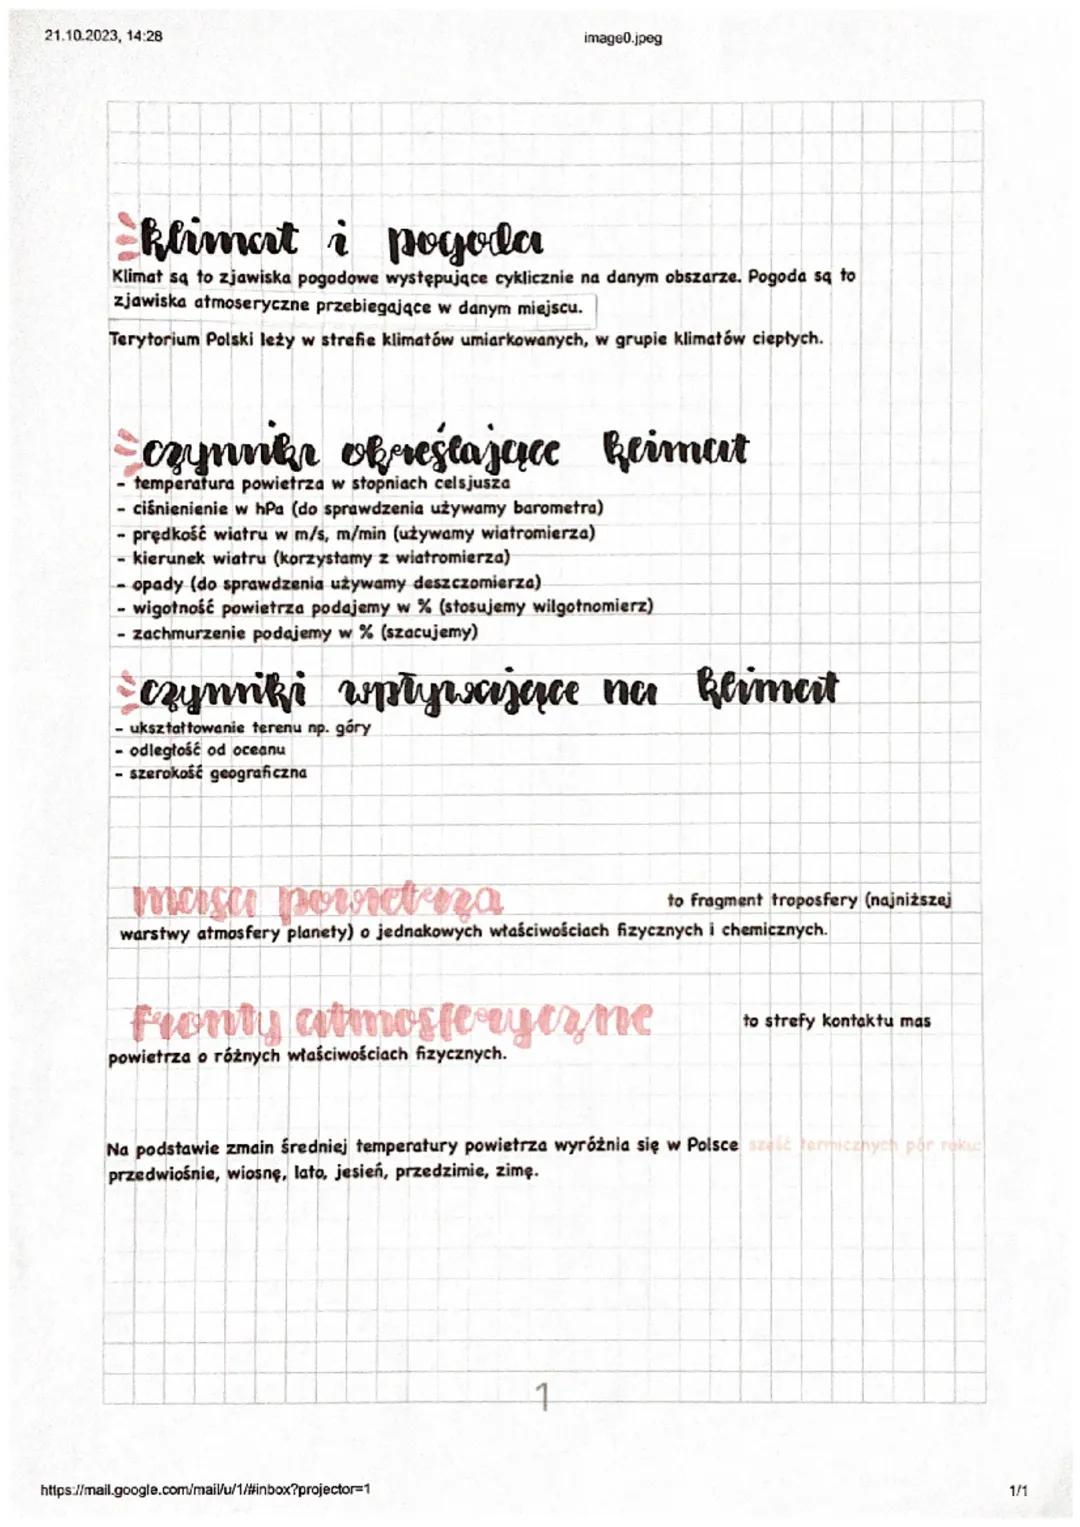 21.10.2023, 14:28
image0.jpeg
klimat i pogoda
Klimat są to zjawiska pogodowe występujące cyklicznie na danym obszarze. Pogoda są to
zjawiska atmoseryczne przebiegające w danym miejscu.
Terytorium Polski leży w strefie klimatów umiarkowanych, w grupie klimatów ciepłych.
czynniki określające klimat
- temperatura powietrza w stopniach celsjusza
- ciśnienienie w hPa (do sprawdzenia używamy barometra)
- prędkość wiatru w m/s, m/min (używamy wiatromierza)
- kierunek wiatru (korzystamy z wiatromierza)
- opady (do sprawdzenia używamy deszczomierza)
- wigotność powietrza podajemy w % (stosujemy wilgotnomierz)
- zachmurzenie podajemy w % (szacujemy)
czynniki wpływające na klimat
- ukształtowanie terenu np. góry
- odległość od oceanu
- szerokość geograficzna
masa powietrza to fragment troposfery (najniższej
warstwy atmosfery planety) o jednakowych właściwościach fizycznych i chemicznych.
fronty atmosferyczne to strefy kontaktu mas
powietrza o różnych właściwościach fizycznych.
Na podstawie zmain średniej temperatury powietrza wyróżnia się w Polsce sześć termicznych pór roku:
przedwiośnie, wiosnę, lato, jesień, przedzimie, zimę.
1
https://mail.google.com/mail/u/1/#inbox?projector=1
1/1